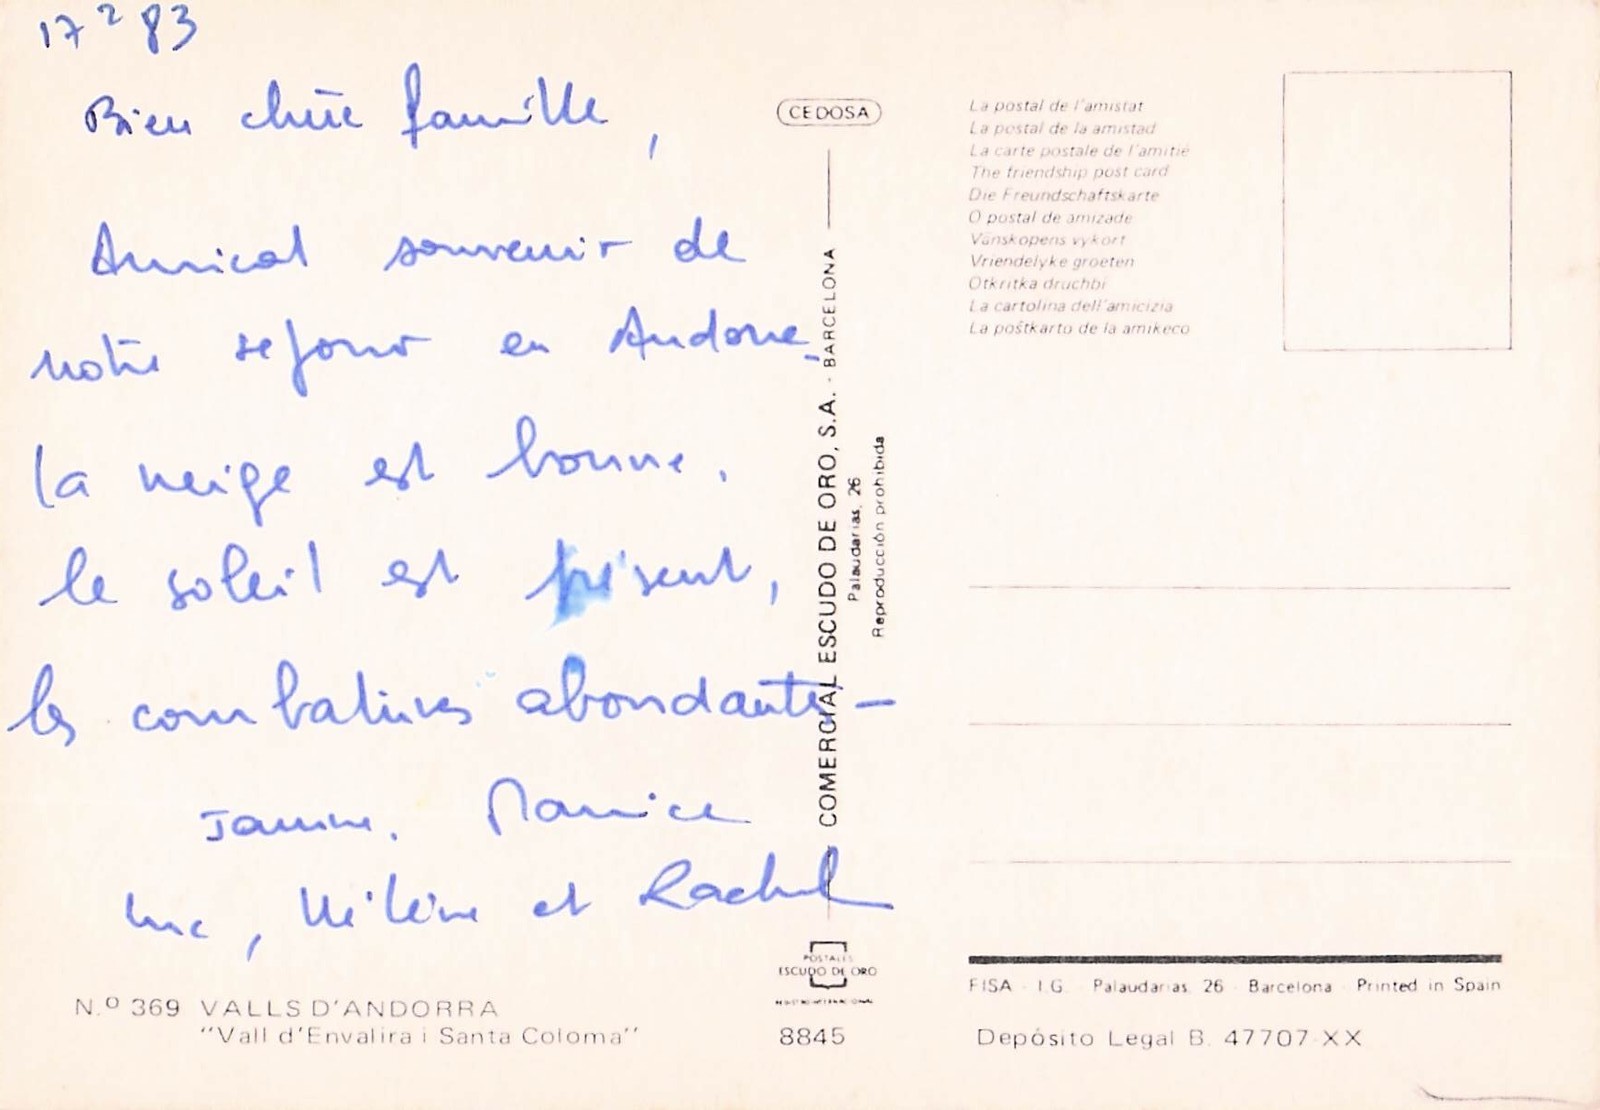 17 2 83
Bien chère famille,
Amical souvenir de
notre sejour en Andorre_
la neige est bonne,
le soleil est présent,
les combatives abondantes —
Janine, Maurice
Luc, Hélène et Rachel
N.º 369 VALLS D'ANDORRA
"Vall d'Envalira i Santa Coloma"
CEDOSA
COMERCIAL ESCUDO DE ORO, S.A. - BARCELONA
Palaudarias, 26
Reproducción prohibida
POSTALES
ESCUDO DE ORO
REGISTRO INTERNACIONAL
8845
La postal de l'amistat
La postal de la amistad
La carte postale de l'amitie
The friendship post card
Die Freundschaftskarte
O postal de amizade
Vänskopens vykort
Vriendelyke groeten
Otkritka druchbi
La cartolina dell'amicizia
La poštkarto de la amikeco
FISA - I.G. - Palaudarias, 26 - Barcelona - Printed in Spain
Depósito Legal B. 47707-XX